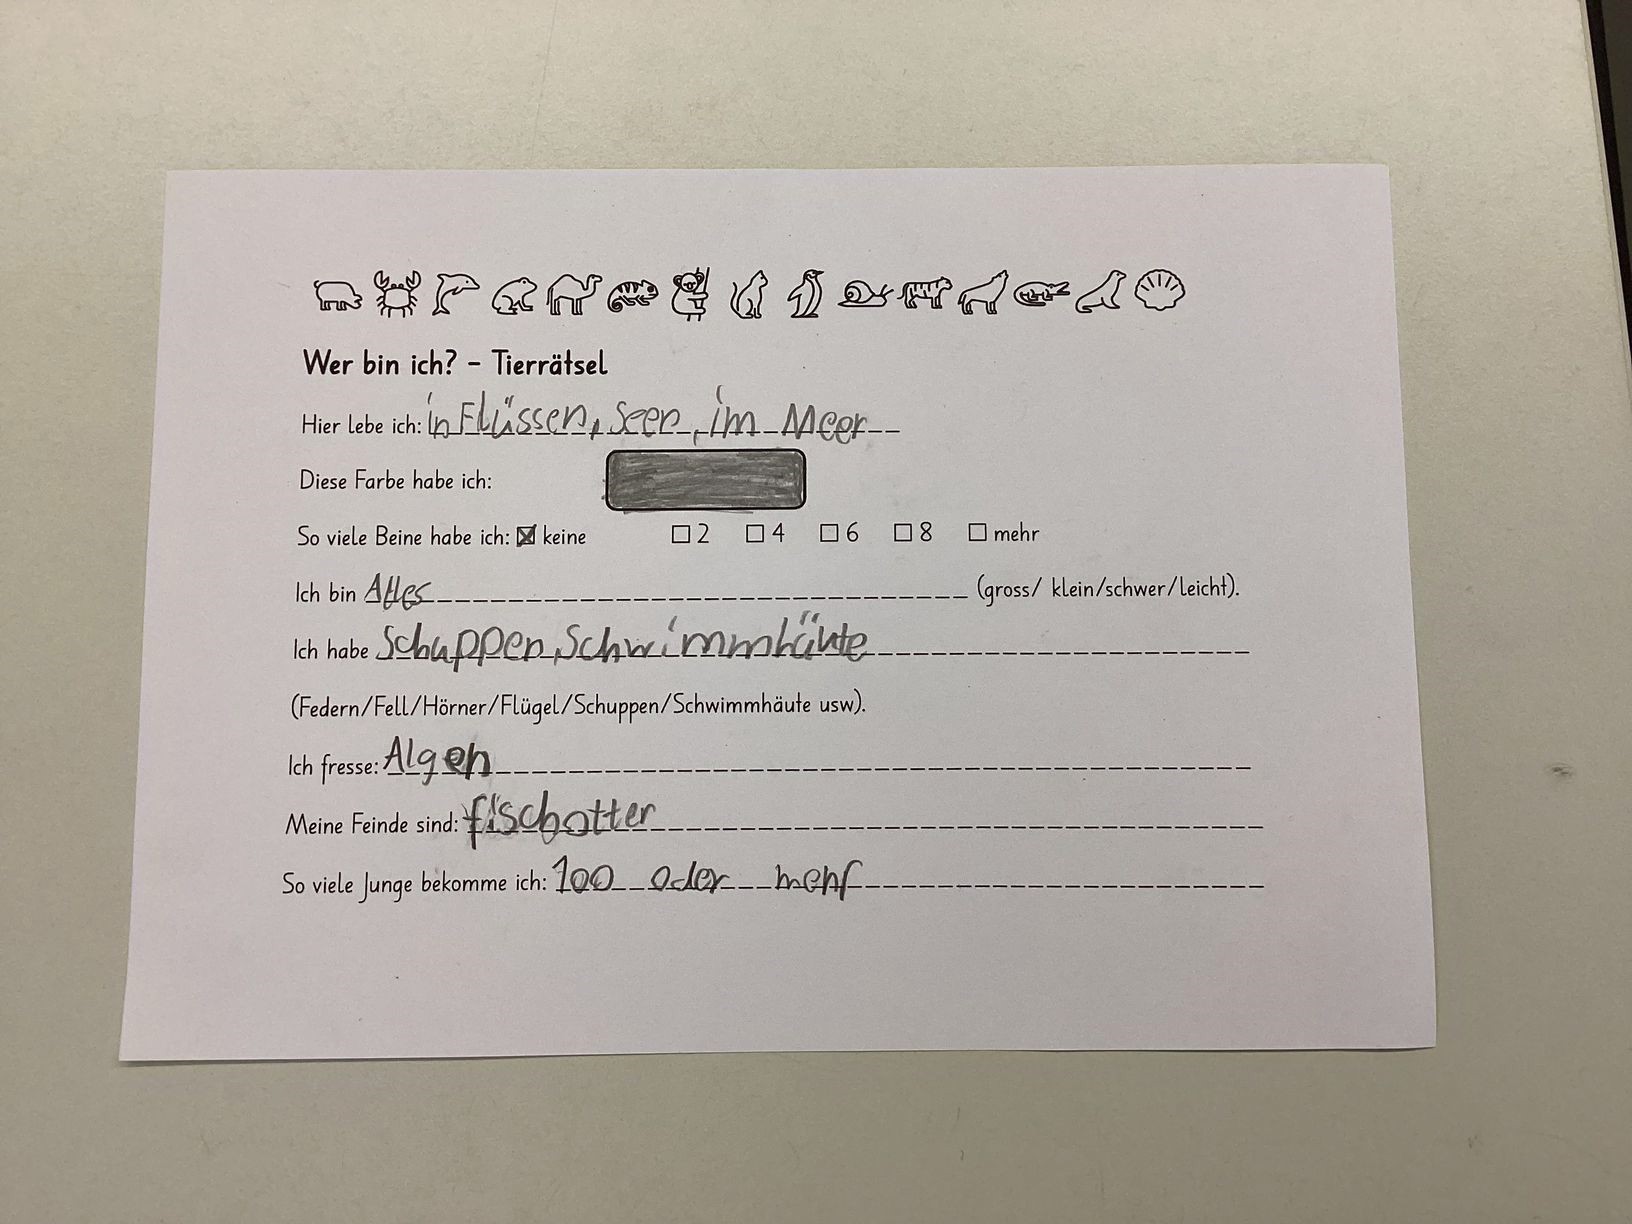 Wer bin ich? – Tierrätsel
Hier lebe ich: in Flüssen, Seen, im Meer
Diese Farbe habe ich:
So viele Beine habe ich: ☒ keine ☐ 2 ☐ 4 ☐ 6 ☐ 8 ☐ mehr
Ich bin Alles (gross/ klein/schwer/leicht).
Ich habe Schuppen, Schwimmhäute
(Federn/Fell/Hörner/Flügel/Schuppen/Schwimmhäute usw).
Ich fresse: Algen
Meine Feinde sind: fischotter
So viele Junge bekomme ich: 100 oder mehr